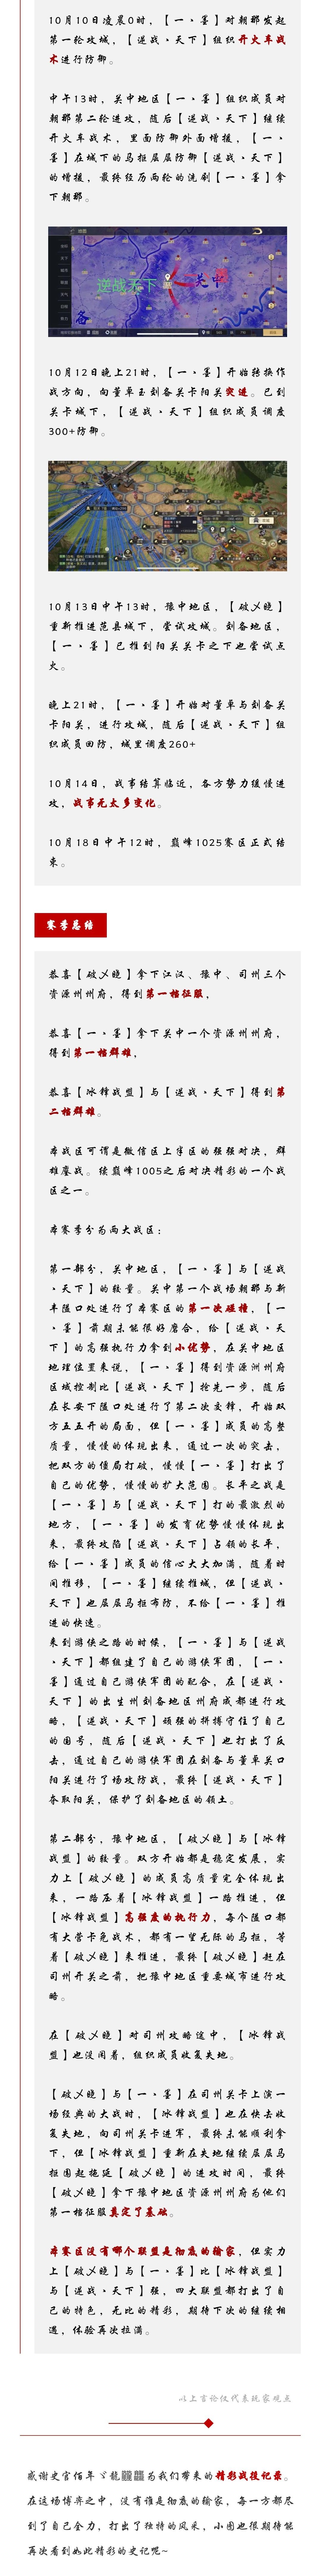 10月10日凌晨0时，【一丶墨】对朝那发起
第一轮攻城，【逆战丶天下】组织开火车战
术进行防御。
中午13时，关中地区【一丶墨】组织成员对
朝那第二轮进攻，随后【逆战丶天下】继续
开火车战术，里面防御外面增援，【一丶
墨】在城下的马拒层层防御【逆战丶天下】
的增援，最终经历两轮的洗刷【一丶墨】拿
下朝那。
逆战天下
关中
10月12日晚上21时，【一丶墨】开始转换作
战方向，向董卓至刘备关卡阳关突进。已到
关卡城下，【逆战丶天下】组织成员调度
300+防御。
10月13日中午13时，豫中地区，【破乄晚】
重新推进范县城下，尝试攻城。刘备地区，
【一丶墨】已推到阳关关卡之下也尝试点
火。
晚上21时，【一丶墨】开始对董卓与刘备关
卡阳关，进行攻城，随后【逆战丶天下】组
织成员回防，城里调度260+
10月14日，战事结算临近，各方势力缓慢进
攻，战事无太多变化。
10月18日中午12时，巅峰1025赛区正式结
束。
赛季总结
恭喜【破乄晚】拿下江汉、豫中、司州三个
资源州州府，得到第一档征服，
恭喜【一丶墨】拿下关中一个资源州州府，
得到第一档群雄，
恭喜【冰锋战盟】与【逆战丶天下】得到第
二档群雄。
本战区可谓是微信区上半区的强强对决，群
雄鏖战。续巅峰1005之后对决精彩的一个战
区之一。
本赛季分为两大战区：
第一部分，关中地区，【一丶墨】与【逆战
丶天下】的较量。关中第一个战场朝那与新
丰隘口处进行了本赛区的第一次碰撞，【一
丶墨】前期未能很好磨合，给【逆战丶天
下】的高强执行力拿到小优势，在关中地区
地理位置来说，【一丶墨】得到资源洲州府
区域控制比【逆战丶天下】抢先一步，随后
在长安下隘口处进行了第二次交锋，开始双
方五五开的局面，但【一丶墨】成员的高整
质量，慢慢的体现出来，通过一次的突击，
把双方的僵局打破，慢慢【一丶墨】打出了
自己的优势，慢慢的扩大范围。长平之战是
【一丶墨】与【逆战丶天下】打的最激烈的
地方，【一丶墨】的发育优势慢慢体现出
来，最终攻陷【逆战丶天下】占领的长平，
给【一丶墨】成员的信心大大加满，随着时
间推移，【一丶墨】继续推城，但【逆战丶
天下】也层层马拒布防，不给【一丶墨】推
进的快速。
来到游侠之路的时候，【一丶墨】与【逆战
丶天下】都组建了自己的游侠军团，【一丶
墨】通过自己游侠军团的配合，在【逆战丶
天下】的出生州刘备地区州府成都进行攻
略，【逆战丶天下】顽强的拼搏守住了自己
的国号，随后【逆战丶天下】也打出了反
击，通过自己的游侠军团在刘备与董卓关口
阳关进行了场攻防战，最终【逆战丶天下】
夺取阳关，保护了刘备地区的领土。
第二部分，豫中地区，【破乄晚】与【冰锋
战盟】的较量。双方开始都是稳定发展，实
力上【破乄晚】的成员高质量完全体现出
来，一路压着【冰锋战盟】一路推进，但
【冰锋战盟】高强度的执行力，每个隘口都
有大营卡免战术，都有一望无际的马拒，等
着【破乄晚】来推进，最终【破乄晚】赶在
司州开关之前，把豫中地区重要城市进行攻
略。
在【破乄晚】对司州攻略途中，【冰锋战
盟】也没闲着，组织成员收复失地。
【破乄晚】与【一丶墨】在司州关卡上演一
场经典的大战时，【冰锋战盟】也在快击收
复失地，向司州关卡进军，最终未能顺利拿
下，但【冰锋战盟】重新在失地继续层层马
拒围起拖延【破乄晚】的进攻时间，最终
【破乄晚】拿下豫中地区资源州州府为他们
第一档征服奠定了基础。
本赛区没有哪个联盟是彻底的输家，但实力
上【破乄晚】与【一丶墨】比【冰锋战盟】
与【逆战丶天下】强，四大联盟都打出了自
己的特色，无比的精彩，期待下次的继续相
遇，体验再次拉满。
以上言论仅代表玩家观点
感谢史官佰年丷龍为我们带来的精彩战役记录。
在这场博弈之中，没有谁是彻底的输家，每一方都尽
到了自己全力，打出了独特的风采，小图也很期待能
再次看到如此精彩的史记呢~